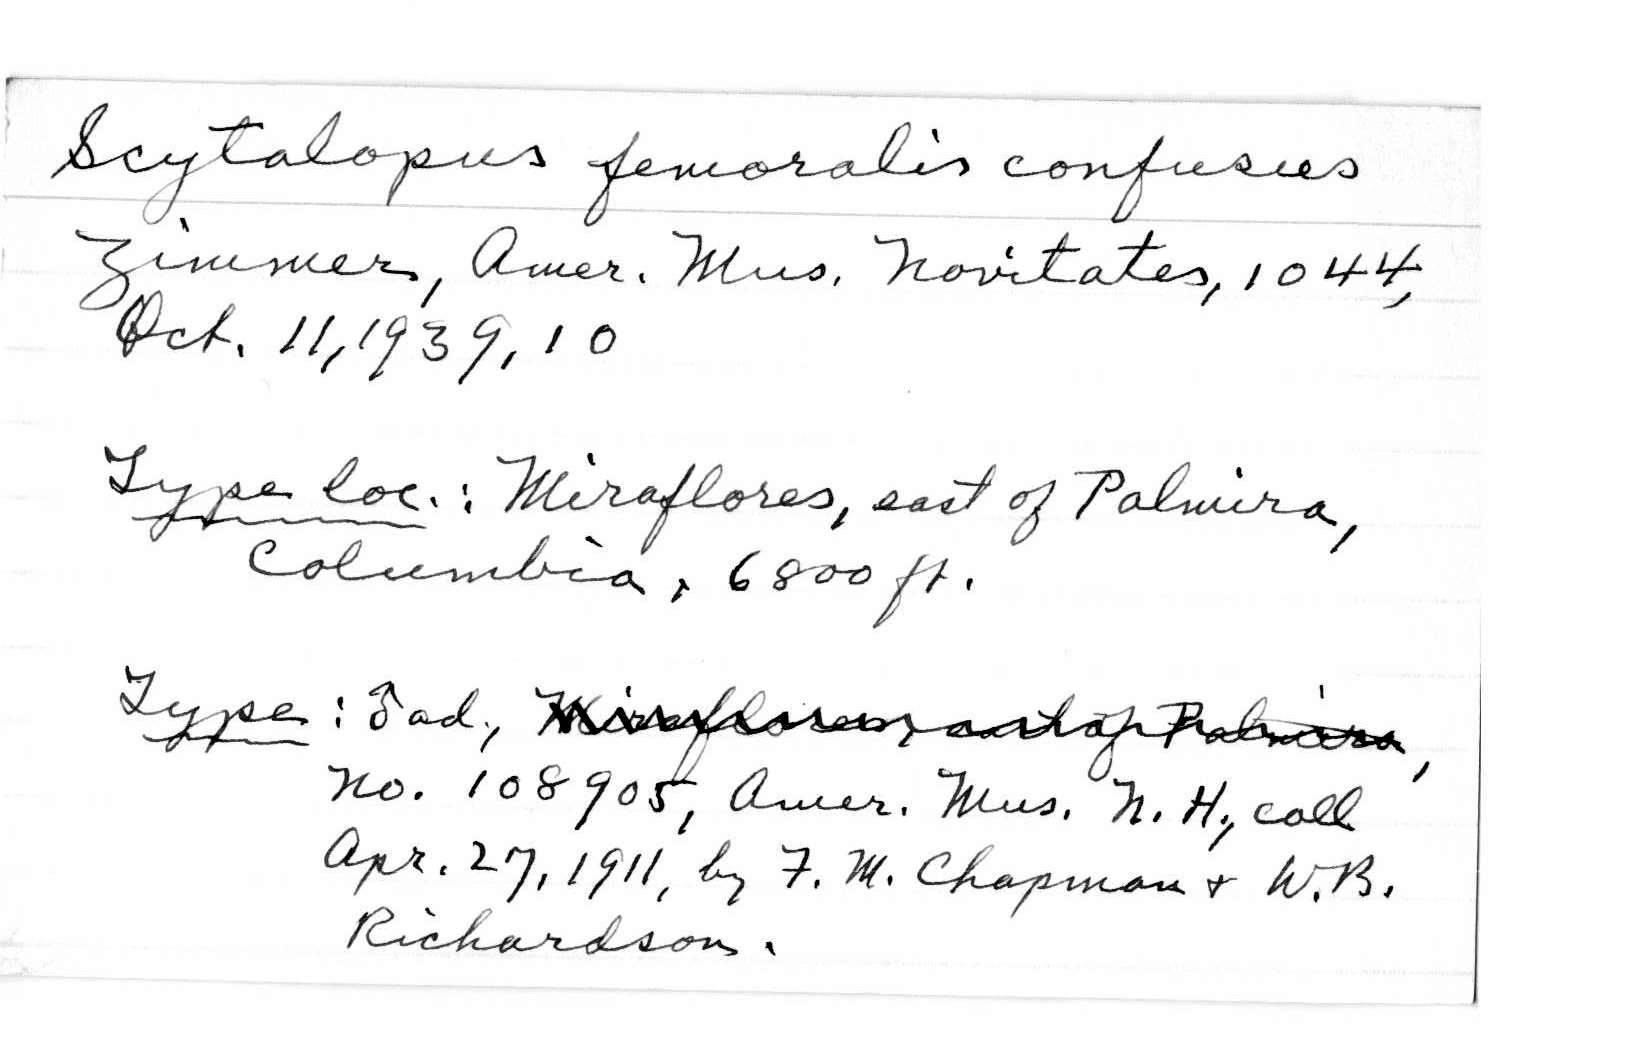 Scytalopus femoralis confusus
Zimmer, Amer. Mus. Novitates, 1044,
Oct. 11, 1939, 10
Type loc.: Miraflores, east of Palmira,
Columbia, 6800 ft.
Type: ♂ ad., Miraflores, east of Palmira,
No. 108905, Amer. Mus. N. H., coll
Apr. 27, 1911, by F. M. Chapman & W. B.
Richardson.